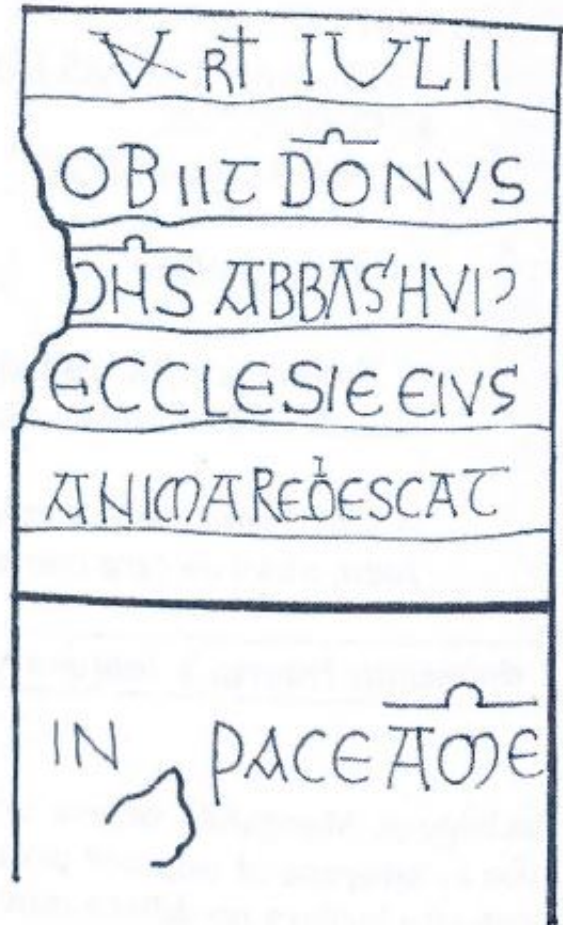 V RT IVLII
OBIIT DOÑVS
DHS ABBAS HVIꝰ
ECCLESIE EIVS
ANIMA REQIESCAT
IN PACE AME